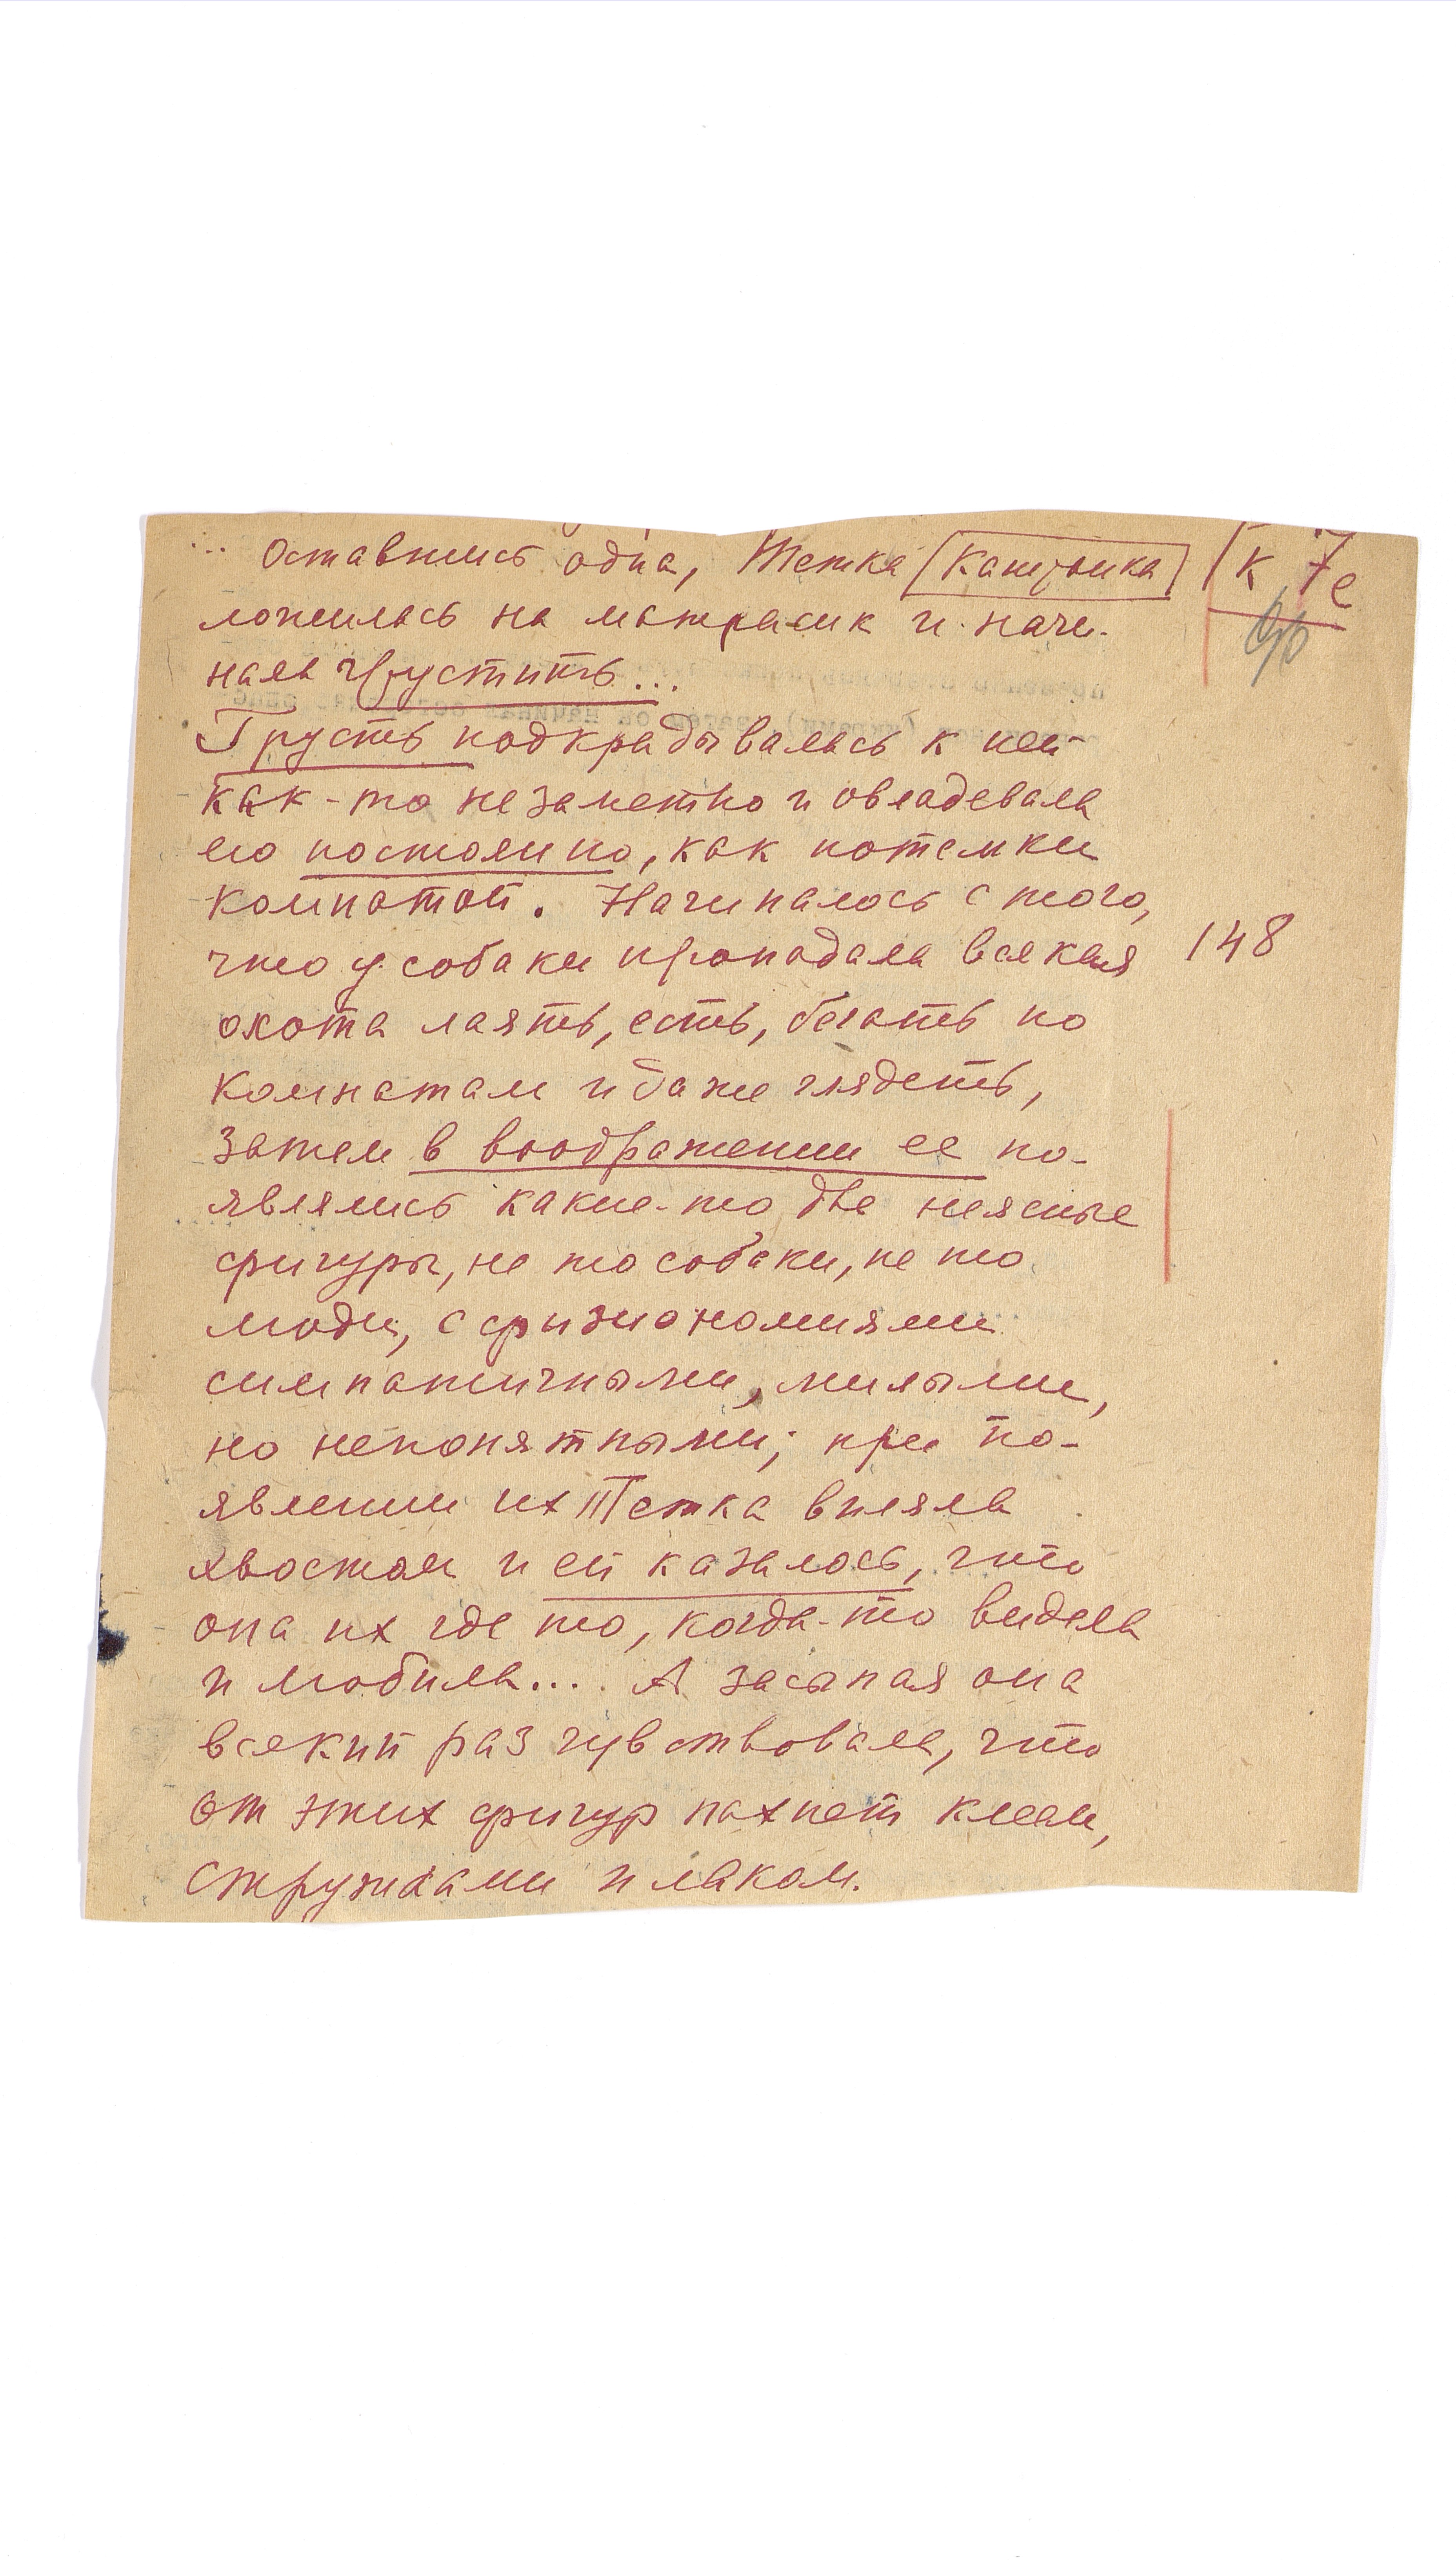 ... Оставшись одна, Тетка [Каштанка] К 7е
ложилась на матрасик и начи-
нала грустить...
Грусть подкрадывалась к ней
как-то незаметно и овладевала
ею постоянно, как потемки
комнатой. Начиналось с того,
что у собаки пропадала всякая 148
охота лаять, есть, бегать по
комнатам и даже глядеть,
затем в воображении ее по-
являлись какие-то две неясные
фигуры, не то собаки, не то
люди, с физиономиями
симпатичными, милыми,
но непонятными; при по-
явлении их Тетка виляла
хвостом и ей казалось, что
она их где то, когда-то видела
и любила... А засыпая она
всякий раз чувствовала, что
от этих фигур пахнет клеем,
стружками и лаком.